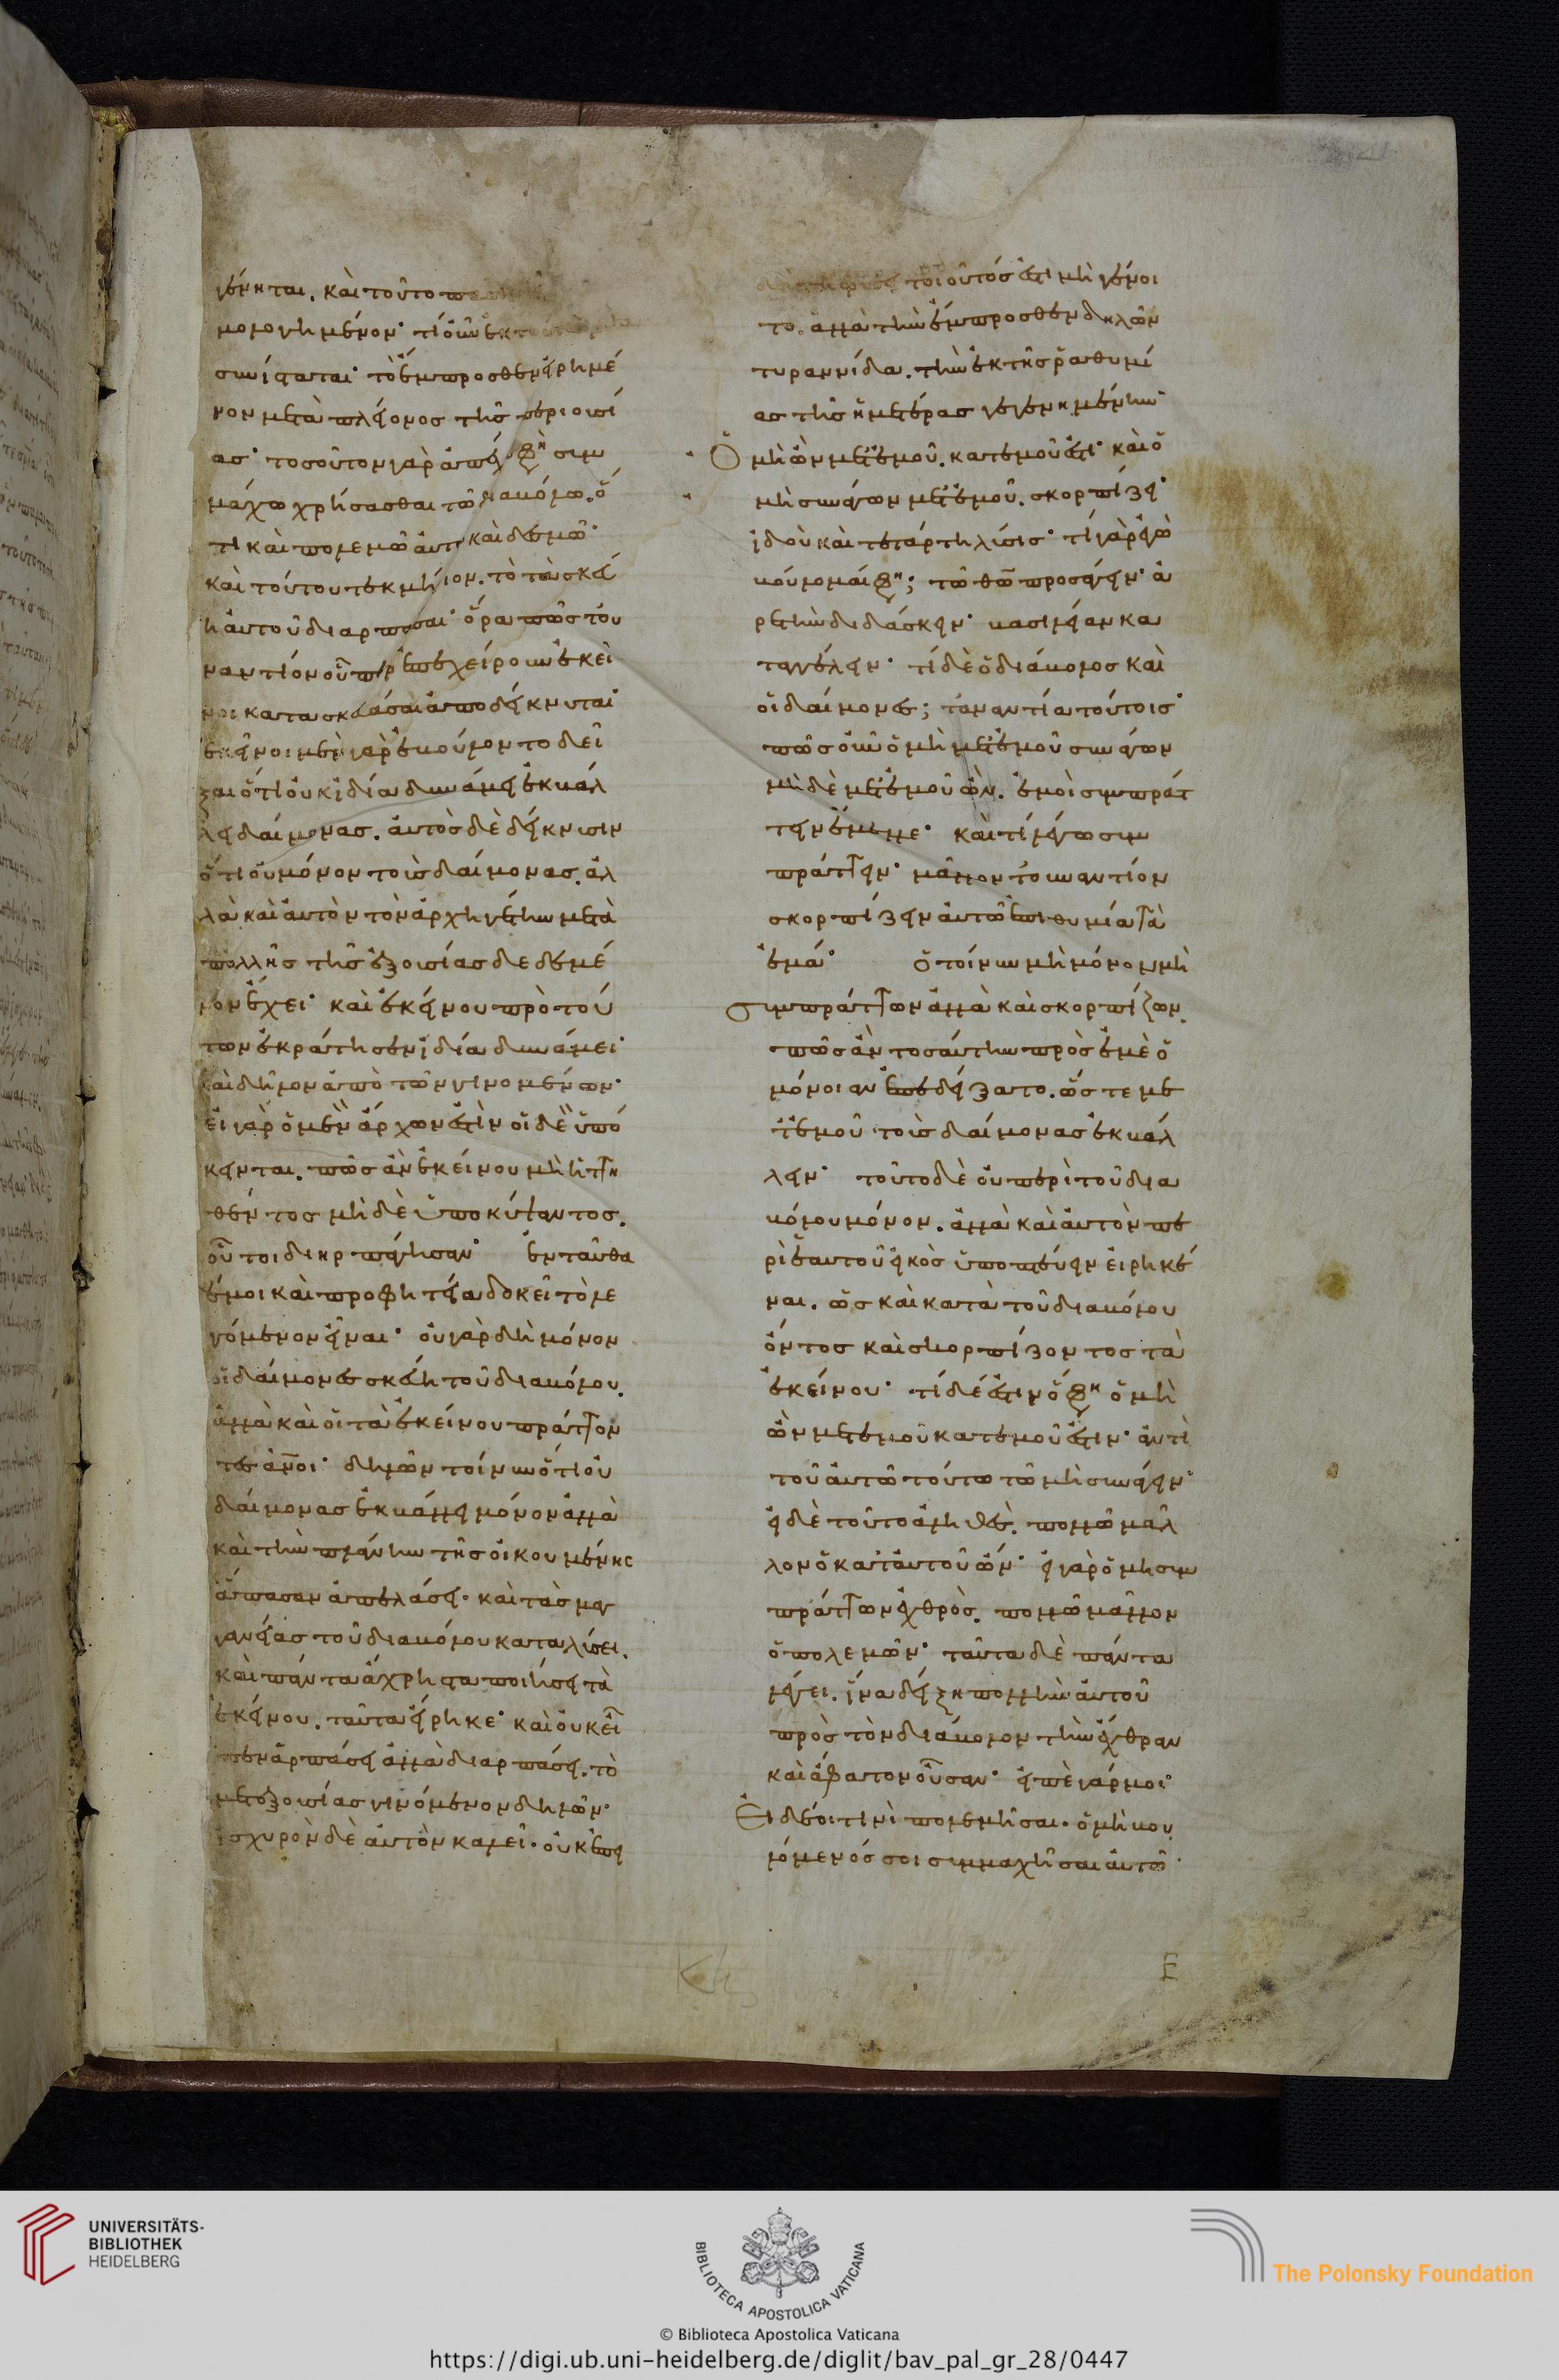 γένηται. καὶ τοῦτο
μολογημένον· τί οὖν ἐκ
συνίσταται· τὸ ἔμπροσθεν εἰρημέ
νον μετὰ πλείονος τῆς περιουσί
ας· τοσοῦτον γὰρ ἀπέχω φη συμ
μάχω χρήσασθαι τῶ διαβόλω. ὅ
τι καὶ πολεμῶ αὐτῶ καὶ δεσμῶ·
καὶ τούτου τεκμήριον. τὸ τὰ σκεύ
η αὐτοῦ διαρπάσαι· ὅρα πῶς τοὐ
ναντίον οὗπερ ἐπεχείρουν ἐκεῖ
νοι κατασκευάσαι ἀποδείκνυται·
ἐκεῖνοι μὲν γὰρ ἐβούλοντο δεῖ
ξαι ὅτι οὐκ ἰδία δυνάμει ἐκβάλ
λει δαίμονας. αὐτὸς δὲ δείκνυσιν
ὅτι οὐ μόνον τοὺς δαίμονας. ἀλ
λὰ καὶ αὐτὸν τὸν ἀρχηγέτην μετὰ
πολλῆς τῆς ἐξουσίας δεδεμέ
νον ἔχει· καὶ ἐκείνου πρὸ τού
των ἐκράτησεν ἰδία δυνάμει·
καὶ δῆλον ἀπὸ τῶν γινομένων·
εἰ γὰρ ὁ μὲν ἄρχων ἐστὶν οἱ δὲ ὑπό
κεινται. πῶς ἂν ἐκείνου μὴ ἡττη
θέντος μηδὲ ὑποκύψαντος.
οὗτοι διηρπάγησαν· ἐνταῦθα
ἐμοι καὶ προφητεία δοκεῖ τὸ λε
γόμενον εἶναι· οὐ γὰρ δὴ μόνον
οἱ δαίμονες σκεύη τοῦ διαβόλου.
ἀλλὰ καὶ οἱ τὰ ἐκείνου πράττον
τες ἄνοι· δηλῶν τοίνυν ὅτι οὐ
δαίμονας ἐκβάλλει μόνον ἀλλὰ
καὶ τὴν πλάνην τῆς οἰκουμένης
ἅπασαν ἀπελάσει. καὶ τὰς μαγ
γανείας τοῦ διαβόλου καταλύσει.
καὶ πάντα ἄχρηστα ποιήσει τὰ
ἐκείνου. ταῦτα εἴρηκε· καὶ οὐκ εἶ
πεν ἁρπάσει ἀλλὰ διαρπάσει. τὸ
μετ ἐξουσίας γινόμενον δηλῶν·
ἰσχυρὸν δὲ αὐτὸν καλεῖ. οὐκ ἐπει
τοιοῦτός ἐστι μὴ γένοι
το. ἀλλὰ τὴν ἔμπροσθεν δηλῶν
τυραννίδα. τὴν ἐκ τῆς ῥαθυμί
ας τῆς ἡμετέρας γεγενημένην·
Ὁ μὴ ὢν μετ ἐμοῦ. κατ ἐμοῦ ἐστι· καὶ ὁ
μὴ συνάγων μετ ἐμοῦ. σκορπίζει·
ἰδοὺ καὶ τετάρτη λύσις· τί γὰρ ἐγὼ
βούλομαί φη; τῶ θῶ προσάγειν· ἀ
ρετὴν διδάσκειν· βασιλείαν κα
ταγέλειν· τί δὲ ὁ διάβολος καὶ
οἱ δαίμονες; τἀναντία τούτοις·
πῶς οὖν ὁ μὴ μετ ἐμοῦ συνάγων
μὴ δὲ μετ ἐμοῦ ὢν. ἐμοὶ συμπράτ
τειν ἔμελλε· καὶ τί λέγω συμ
πράττειν· μᾶλλον τοὐναντίον
σκορπίζειν αὐτῶ ἐπιθυμία τὰ
ἐμά· ὁ τοίνυν μὴ μόνον μὴ
συμπράττων ἀλλὰ καὶ σκορπίζων.
πῶς ἂν τοσαύτην πρὸς ἐμὲ ὁ
μόνοιαν ἐπεδείξατο. ὥστε με
τ ἐμοῦ τοὺς δαίμονας ἐκβάλ
λειν· τοῦτο δὲ οὐ περὶ τοῦ δια
βόλου μόνον. ἀλλὰ καὶ αὐτὸν πε
ρὶ ἑαυτοῦ εἰκὸς ὑποπτεύειν εἰρηκέ
ναι. ὡς καὶ κατὰ τοῦ διαβόλου
ὄντος καὶ σκορπίζοντος τὰ
ἐκείνου· τί δέ ἐστιν ὅ φη ὁ μὴ
ὢν μετ ἐμοῦ κατ ἐμοῦ ἐστιν· ἀντὶ
τοῦ αὐτῶ τούτω τῶ μὴ συνάγειν·
εἰ δὲ τοῦτο ἀληθές. πολλῶ μᾶλ
λον ὁ κατ αὐτοῦ ὤν· εἰ γὰρ ὁ μὴ συμ
πράττων ἐχθρὸς. πολλῶ μᾶλλον
ὁ πολεμῶν· ταῦτα δὲ πάντα
λέγει. ἵνα δείξη πολλὴν αὐτοῦ
πρὸς τὸν διάβολον τὴν ἔχθραν
καὶ ἄφατον οὖσαν· εἰπὲ γάρ μοι·
Εἰ δέοι τινὶ πολεμῆσαι. ὁ μὴ βου
λόμενός σοι συμμαχῆσαι αὐτῶ
E
UNIVERSITÄTS-
BIBLIOTHEK
HEIDELBERG
BIBLIOTECA APOSTOLICA VATICANA
The Polonsky Foundation
© Biblioteca Apostolica Vaticana
https://digi.ub.uni-heidelberg.de/diglit/bav_pal_gr_28/0447